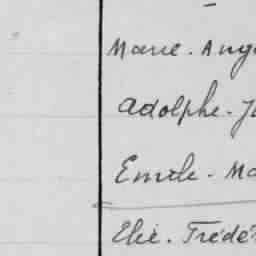 Marie. Ang
Adolphe. J
Emile. Ma
Elie. Fréde